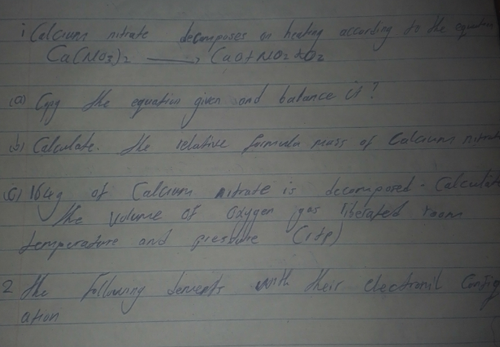 i Calcium nitrate decomposes on heating according to the equation
Ca(NO3)2 → CaO+NO2+O2
(a) Copy the equation given and balance it?
(b) Calculate. the relative formula mass of Calcium nitrate
(c) 164g of Calcium nitrate is decomposed. Calculate
the volume of oxygen gas liberated room
temperature and pressure (rtp)
2 the following with their electronic config
ation